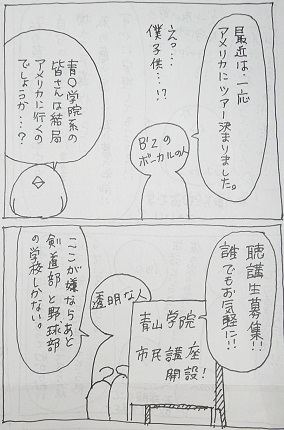 最近は、一応
アメリカにツアー決まりました。
えっ…
僕子供…!?
B'zの
ボーカルの人
青〇学院系の
皆さんは結局
アメリカに行くの
でしょうか…?
聴講生募集!!
誰でもお気軽に!!
青山学院
市民講座
開設!
透明な人
ここが嫌ならあと
剣道部と野球部
の学校しかない。